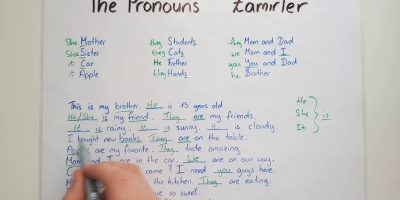 The Pronouns Zamirler
She Mother they Students they Mom and Dad
She Sister they Cats we Mom and I
it Car He Father you You and Dad
it Apple they Hands he Brother
This is my brother. He is 15 years old
He/She is my friend. They are my friends.
It is rainy. It is sunny. It is cloudy.
I bought new books. They are on the table.
are my favorite. They taste amazing.
Mom and I are in the car. We are on our way.
come? I need you guys here.
the kitchen. They are eating.
so sweet.
He
She is
It